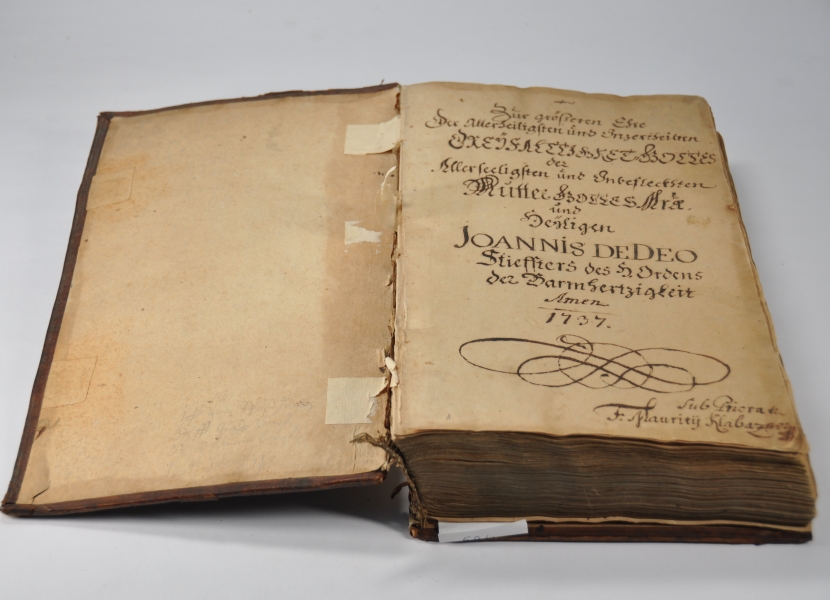 Zur gröseren Ehre
Der Allerheiligsten und Unzertheilten
DREÿFALTIGKEIT GOTTES
der
Allerseeligsten und Unbefleckhten
Mutter GOTTES Mriæ
und
Heÿligen
JOANNIS DE DEO
Stieffters des H Ordens
der Barmhertzigkeit
Amen
1737.
sub Priora
F. Mauritÿ